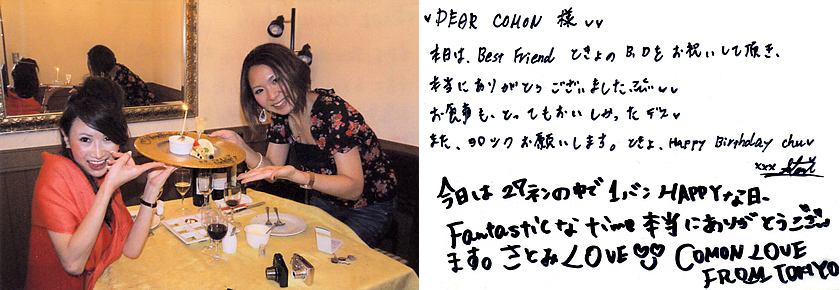 ♥DEAR COMON 様♥♥
本日は、Best Friend ときよの B,D を お祝いして頂き、
本当にありがとうございました。♥♥
お食事も、とってもおいしかったデス♥
また、ヨロシク お願いします。ときよ、Happy Birthday chu♥
xxx
今日は 27年の中で 1バン HAPPYな日、
Fantasticな time 本当にありがとうござい
ます。さとみ LOVE♥♥ COMON LOVE
FROM TOKIYO